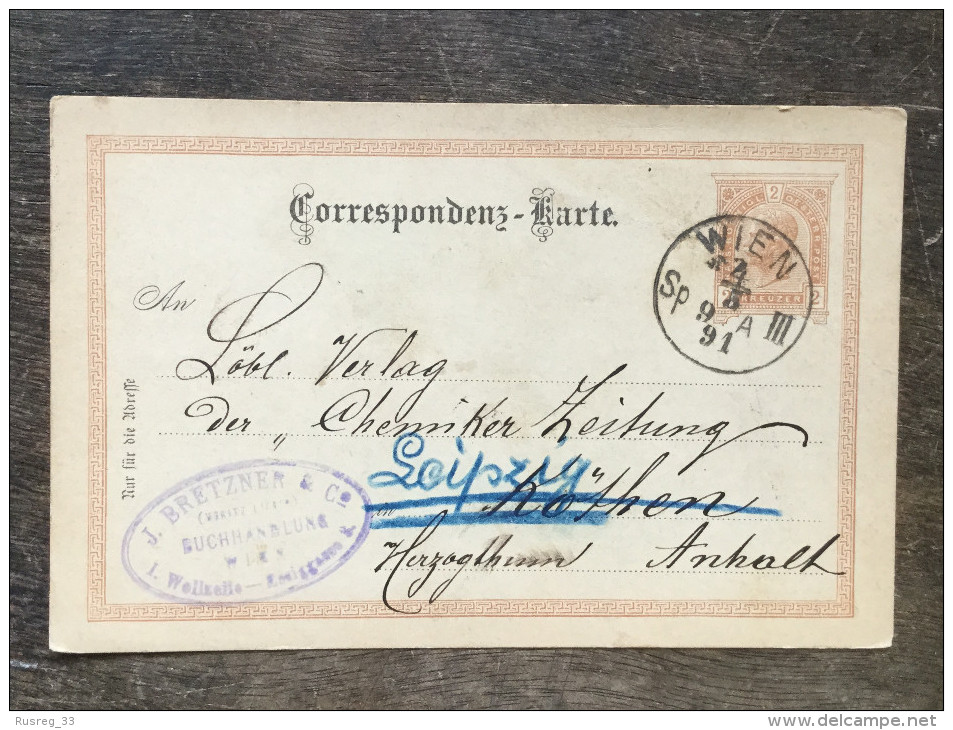 Correspondenz-Karte.
2
KREUZER
2
WIEN
Sp 9. A III
91
An
Löbl. Verlag
der „ Chemiker Zeitung
Leipzig
in Köthen
Herzogthum Anhalt
Nur für die Adresse
J. BRETZNER & Co
BUCHHANDLUNG
WIEN
I. Wollzeile
Rusreg_33
delcampe.net